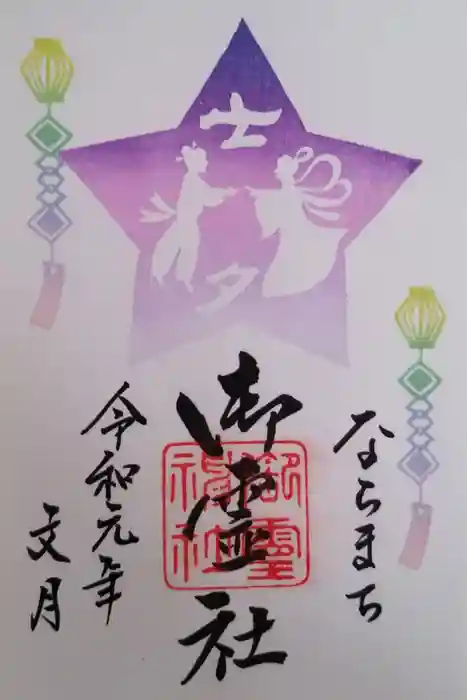 七夕
ならまち
御霊社
御靈
神社
令和元年
文月